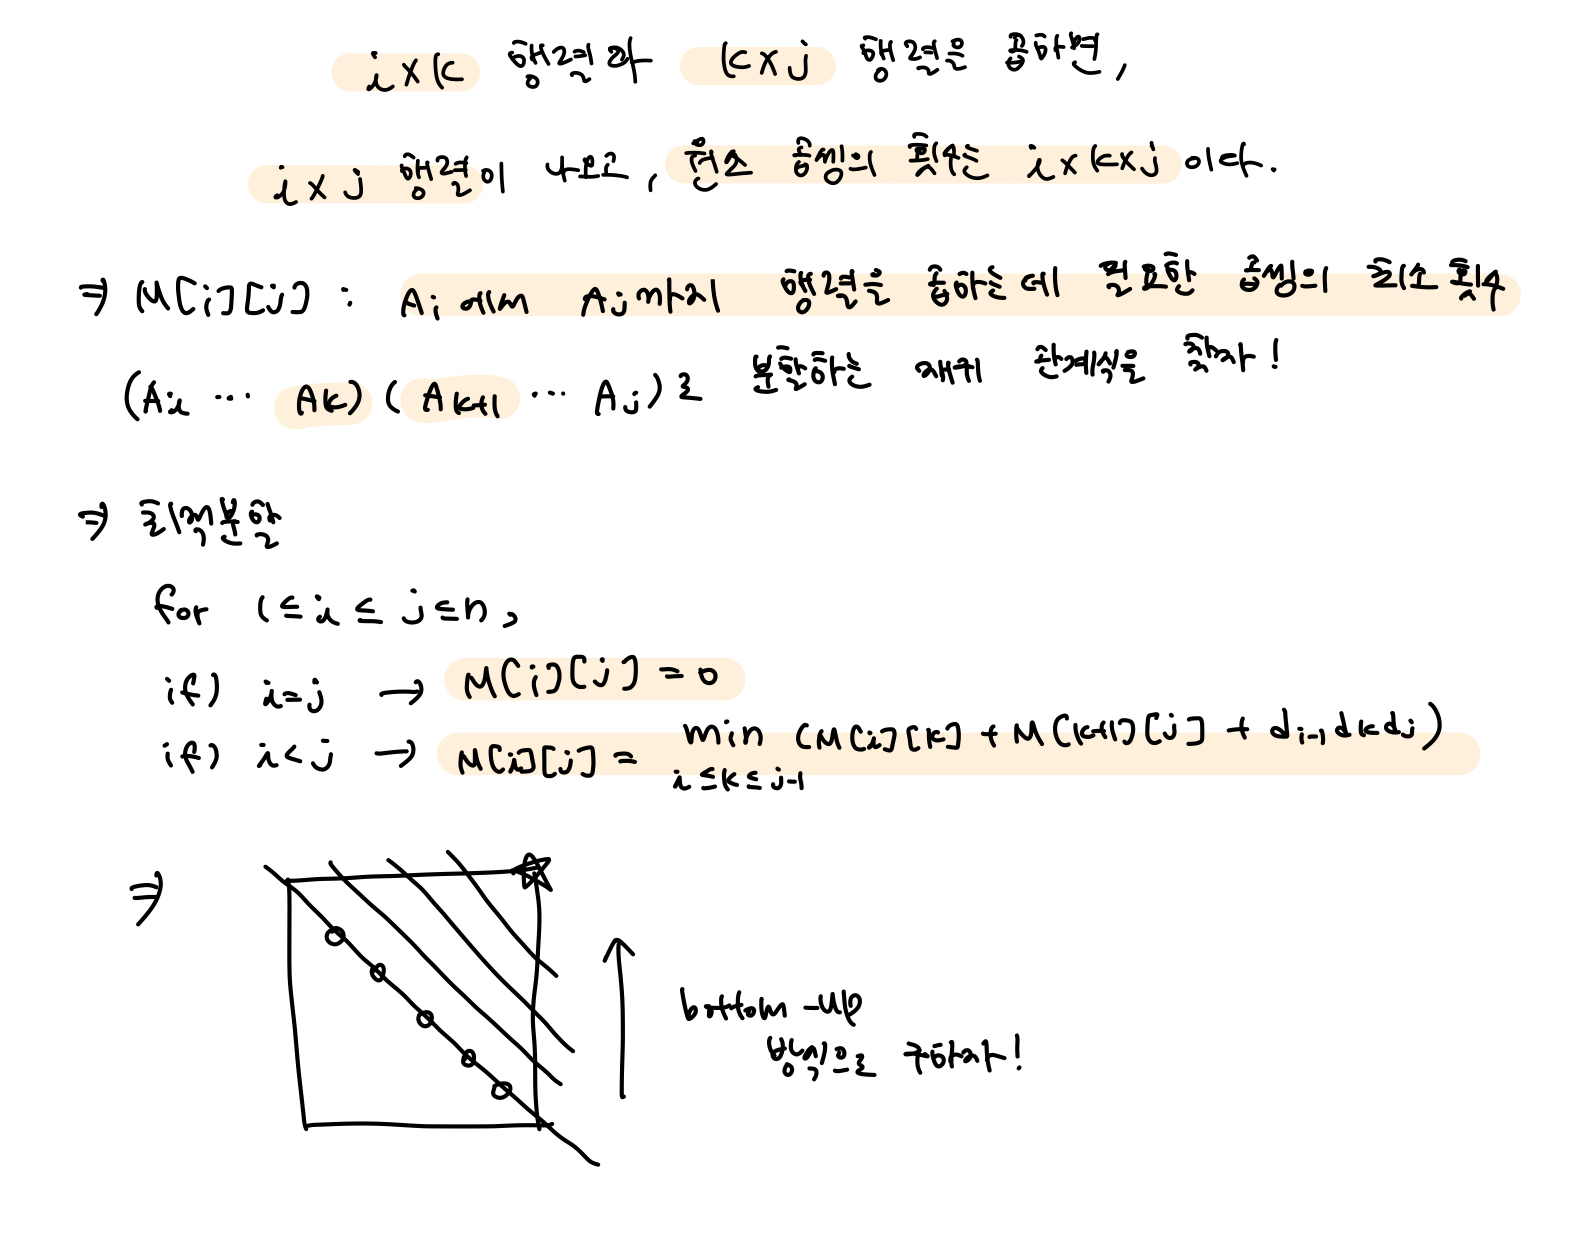 i x k 행렬과 k x j 행렬을 곱하면,
i x j 행렬이 나오고, 원소 곱셈의 횟수는 i x k x j 이다.
⇒ M[i][j] : Ai에서 Aj까지 행렬을 곱하는데 필요한 곱셈의 최소 횟수
(Ai ... Ak) (Ak+1 ... Aj)로 분할하는 재귀 관계식을 찾자!
⇒ 최적분할
for 1 ≤ i ≤ j ≤ n,
if) i=j → M[i][j] = 0
if) i<j → M[i][j] = min (M[i][k] + M[k+1][j] + di-1 dk dj)
i ≤ k ≤ j-1
⇒
bottom-up
방식으로 구하자!